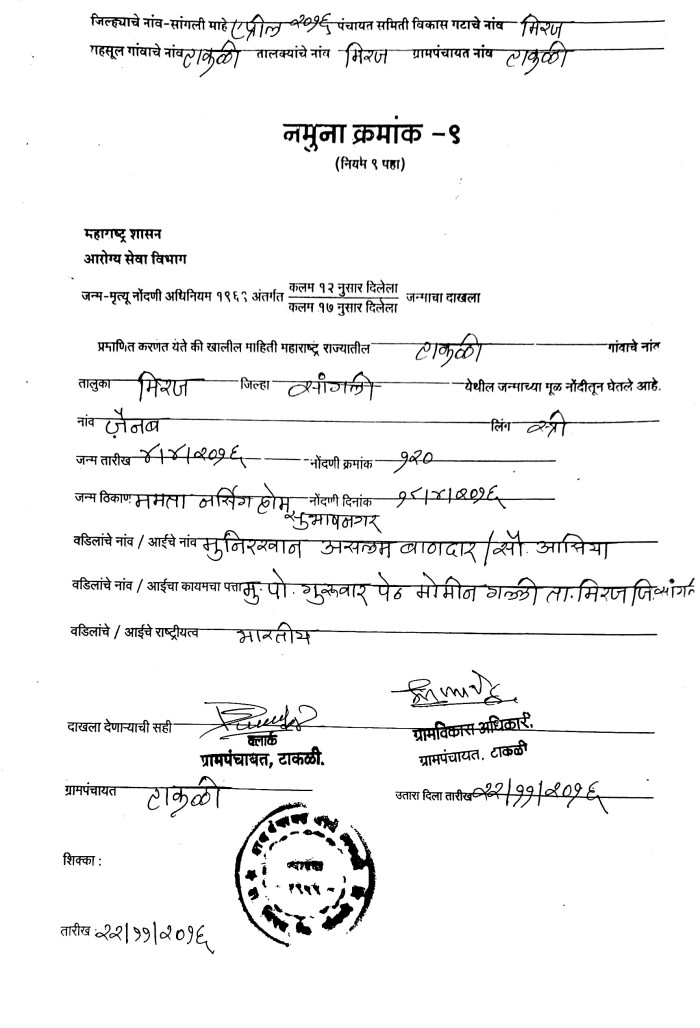 जिल्ह्याचे नांव-सांगली माहे एप्रील २०१६ पंचायत समिती विकास गटाचे नांव मिरज
गहसूल गांवाचे नांव टाकळी तालक्यांचे नांव मिरज ग्रामपंचायत नांव टाकळी
नमुना क्रमांक -९
(नियम ९ पहा)
महाराष्ट्र शासन
आरोग्य सेवा विभाग
जन्म-मृत्यू नोंदणी अधिनियम १९६९ अंतर्गत कलम १२ नुसार दिलेला / कलम १७ नुसार दिलेला जन्माचा दाखला
प्रमाणित करणत येते की खालील माहिती महाराष्ट्र राज्यातील टाकळी गांवाचे नांव
तालुका मिरज जिल्हा सांगली येथील जन्माच्या मूळ नोंदीतून घेतले आहे.
नांव ज़ैनब लिंग स्त्री
जन्म तारीख ४/४/२०१६ नोंदणी क्रमांक १२०
जन्म ठिकाण ममता नर्सिंग होम नोंदणी दिनांक १८/४/२०१६
सुभाषनगर
वडिलांचे नांव / आईचे नांव मुनिरखान असलम बाणदार / सौ. आसिया
वडिलांचे नांव / आईचा कायमचा पत्ता मु. पो. गुरूवार पेठ मोमीन गल्ली ता. मिरज जि.सांगली
वडिलांचे / आईचे राष्ट्रीयत्व भारतीय
दाखला देणाऱ्याची सही क्लार्क ग्रामविकास अधिकारी.
ग्रामपंचायत, टाकळी. ग्रामपंचायत. टाकळी
ग्रामपंचायत टाकळी उतारा दिला तारीख २२/११/२०१६
शिक्का :
तारीख २२/११/२०१६